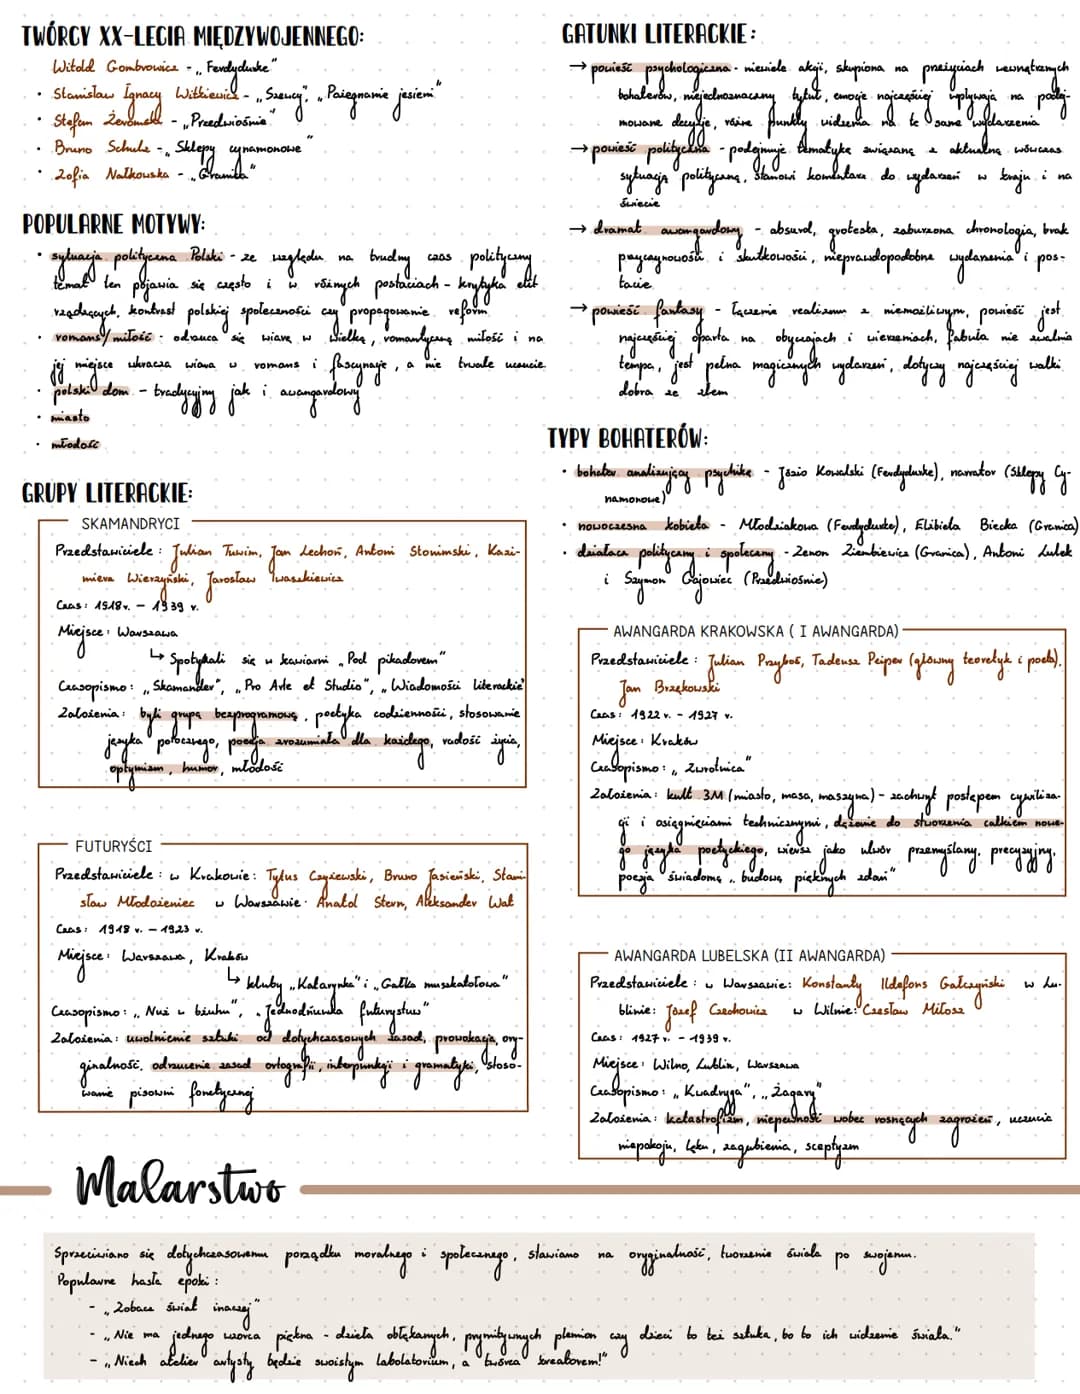 TWÓRCY XX-LECIA MIĘDZYWOJENNEGO:
Witold Gombrowicz - „Ferdydurke"
• Stanisław Ignacy Witkiewicz - „Szewcy", „Pożegnanie jesieni"
• Stefan Żeromski - „Przedwiośnie"
• Bruno Schulz - „Sklepy cynamonowe"
• Zofia Nałkowska - „Granica"
POPULARNE MOTYWY:
• sytuacja polityczna Polski - ze względu na trudny czas polityczny
temat ten pojawia się często i w różnych postaciach - krytyka elit
rządzących, kontrast polskiej społeczności czy propagowanie reform
• romans/miłość - odrzuca się wiarę w wielką, romantyczną miłość i na
jej miejsce wkracza wiara w romans i fascynację, a nie trwałe uczucie
• polski dom - tradycyjny jak i awangardowy
• miasto
• młodość
GRUPY LITERACKIE:
SKAMANDRYCI
Przedstawiciele: Julian Tuwim, Jan Lechoń, Antoni Słonimski, Kazi-
miera Wierzyński, Jarosław Iwaszkiewicz
Czas: 1918r. - 1939 r.
Miejsce: Warszawa
↳ Spotykali się w kawiarni „Pod pikadorem"
Czasopismo: „Skamander", „Pro Arte et Studio", „Wiadomości literackie"
Założenia: byli grupą bezprogramową, poetyka codzienności, stosowanie
języka potocznego, poezja zrozumiała dla każdego, radość życia,
optymizm, humor, młodość
FUTURYŚCI
Przedstawiciele: w Krakowie: Tytus Czyżewski, Bruno Jasieński, Stani-
sław Młodożeniec w Warszawie: Anatol Stern, Aleksander Wat
Czas: 1918 r. - 1923 r.
Miejsce: Warszawa, Kraków
↳ kluby „Katarynka" i „Gałka muszkatołowa"
Czasopismo: „Nuż w bżuhu", „Jednodńuwka futurystuw"
Założenia: uwolnienie sztuki od dotychczasowych zasad, prowokacja, ory-
ginalność, odrzucenie zasad ortografii, interpunkcji i gramatyki, stoso-
wanie pisowni fonetycznej
GATUNKI LITERACKIE:
→ powieść psychologiczna - niewiele akcji, skupiona na przeżyciach wewnątrznych
bohaterów, niejednoznaczny tytuł, emocje najczęściej wpływają na podej-
mowane decyzje, różne punkty widzenia na te same wydarzenia
→ powieść polityczna - podejmuje tematykę związaną z aktualną wówczas
sytuacją polityczną, stanowi komentarz do wydarzeń w kraju i na
świecie
→ dramat awangardowy - absurd, groteska, zaburzona chronologia, brak
przyczynowości i skutkowości, nieprawdopodobne wydarzenia i pos-
tacie
→ powieść fantasy - łączenie realizmu z niemożliwym, powieść jest
najczęściej oparta na obyczajach i wierzeniach, fabuła nie zwalnia
tempa, jest pełna magicznych wydarzeń, dotyczy najczęściej walki
dobra ze złem
TYPY BOHATERÓW:
• bohater analizujący psychikę - Józio Kowalski (Ferdydurke), narrator (Sklepy Cy-
namonowe)
• nowoczesna kobieta - Młodziakowa (Ferdydurke), Elżbieta Biecka (Granica)
• działacz polityczny i społeczny - Zenon Ziembiewicz (Granica), Antoni Lulek
i Szymon Gajowiec (Przedwiośnie)
AWANGARDA KRAKOWSKA ( I AWANGARDA)
Przedstawiciele: Julian Przyboś, Tadeusz Peiper (główny teoretyk i poeta),
Jan Brzękowski
Czas: 1922 r. - 1927 r.
Miejsce: Kraków
Czasopismo: „Zwrotnica"
Założenia: kult 3M (miasto, masa, maszyna) - zachwyt postępem cywiliza-
cji i osiągnięciami technicznymi, dążenie do stworzenia całkiem nowe-
go języka poetyckiego, wiersz jako utwór przemyślany, precyzyjny,
poezja świadomą „budową pięknych zdań"
AWANGARDA LUBELSKA (II AWANGARDA)
Przedstawiciele: w Warszawie: Konstanty Ildefons Gałczyński w Lu-
blinie: Józef Czechowicz w Wilnie: Czesław Miłosz
Czas: 1927 r. - 1939 r.
Miejsce: Wilno, Lublin, Warszawa
Czasopismo: „Kwadryga", „Żagary"
Założenia: katastrofizm, niepewność wobec rosnących zagrożeń, uczucia
niepokoju, lęku, zagubienia, sceptyzm
Malarstwo
Sprzeciwiano się dotychczasowemu porządku moralnego i społecznego, stawiano na oryginalność, tworzenie świata po swojemu.
Popularne hasła epoki:
- „Zobacz świat inaczej"
- „Nie ma jednego wzorca piękna - dzieła obłąkanych, prymitywnych plemion czy dzieci to też sztuka, bo to ich widzenie świata."
- „Niech atelier artysty będzie swoistym labolatorium, a twórca kreatorem!"